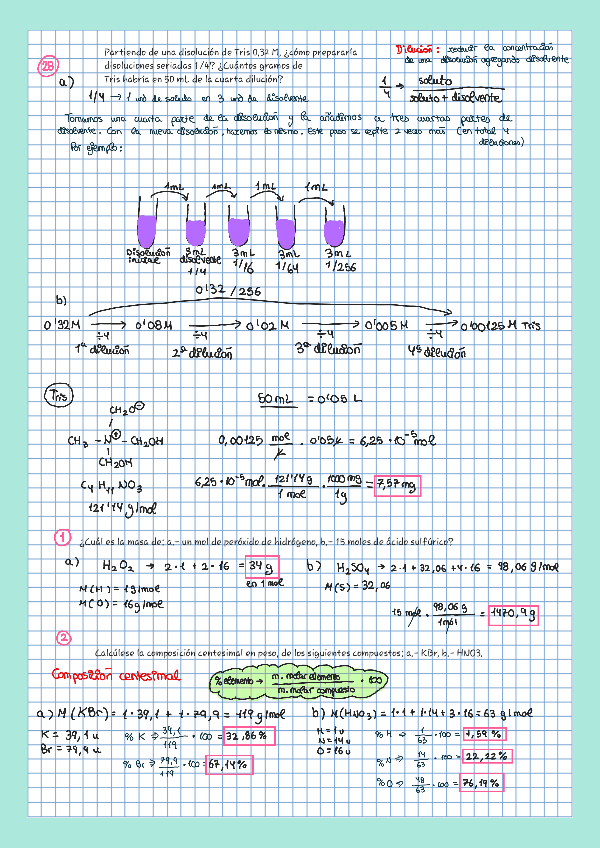 28
Partiendo de una disolución de Tris 0,32 M, ¿cómo prepararía
disoluciones seriadas 1/4? ¿Cuántos gramos de
Tris habría en 50 mL de la cuarta dilución?
Dilución: reducir la concentración
de una disolución agregando disolvente
a)
1/4 → 1 und de soluto en 3 und de disolvente
1/4 → soluto / soluto + disolvente
Tomamos una cuarta parte de la disolución y la añadimos a tres cuartas partes de
disolvente. Con la nueva disolución, hacemos lo mismo. Este paso se repite 2 veces más (en total 4
diluciones)
Por ejemplo:
1mL 1mL 1mL 1mL
Disolución inicial
3mL disolvente 1/4
3mL 1/16
3mL 1/64
3mL 1/256
0'32 / 256
b)
0'32M → 0'08M → 0'02 M → 0'005M → 0'00125 M Tris
÷4 ÷4 ÷4 ÷4
1ª dilución 2ª dilución 3ª dilución 4ª dilución
Tris
50mL = 0'05 L
CH2O⊖
CH3 - N⊕ - CH2OH
CH2OH
0,00125 mol/L · 0'05L = 6,25 · 10^-5 mol
C4 H11 NO3
121'14 g/mol
6,25 · 10^-5 mol · 121'14 g / 1 mol · 1000 mg / 1g = 7,57 mg
1
¿Cuál es la masa de: a.- un mol de peróxido de hidrógeno, b.- 15 moles de ácido sulfúrico?
a) H2O2 → 2·1 + 2·16 = 34 g
en 1 mol
M(H) = 1g/mol
M(O) = 16g/mol
b) H2SO4 → 2·1 + 32,06 + 4·16 = 98,06 g/mol
M(S) = 32,06
15 mol · 98,06 g / 1 mol = 1470,9 g
2
Calcúlese la composición centesimal en peso, de los siguientes compuestos: a.- KBr, b.- HNO3.
Composición centesimal
% elemento → m. molar elemento / m. molar compuesto · 100
a) M(KBr) = 1·39,1 + 1·79,9 = 119 g/mol
K = 39,1 u
Br = 79,9 u
% K ⇒ 39,1/119 · 100 = 32,86%
% Br ⇒ 79,9/119 · 100 = 67,14%
b) M(HNO3) = 1·1 + 1·14 + 3·16 = 63 g/mol
H = 1u
N = 14u
O = 16u
% H ⇒ 1/63 · 100 = 1,59%
% N ⇒ 14/63 · 100 = 22,22%
% O ⇒ 48/63 · 100 = 76,19%